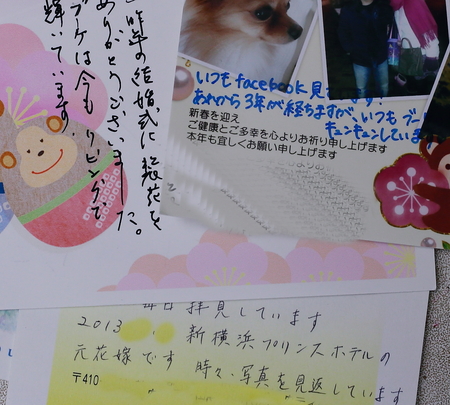 昨年の結婚式に装花を
ありがとうございました。
ブーケは今もリビングで
輝いています。
いつもfacebookに見
あれから3年が経ちますが、いつもブー
キュンキュンしていま
新春を迎え
ご健康とご多幸を心よりお祈り申し上げます
本年も宜しくお願い申し上げます
毎日拝見しています
2013 新横浜プリンスホテルの
元花嫁です 時々、写真を見返しています
〒410